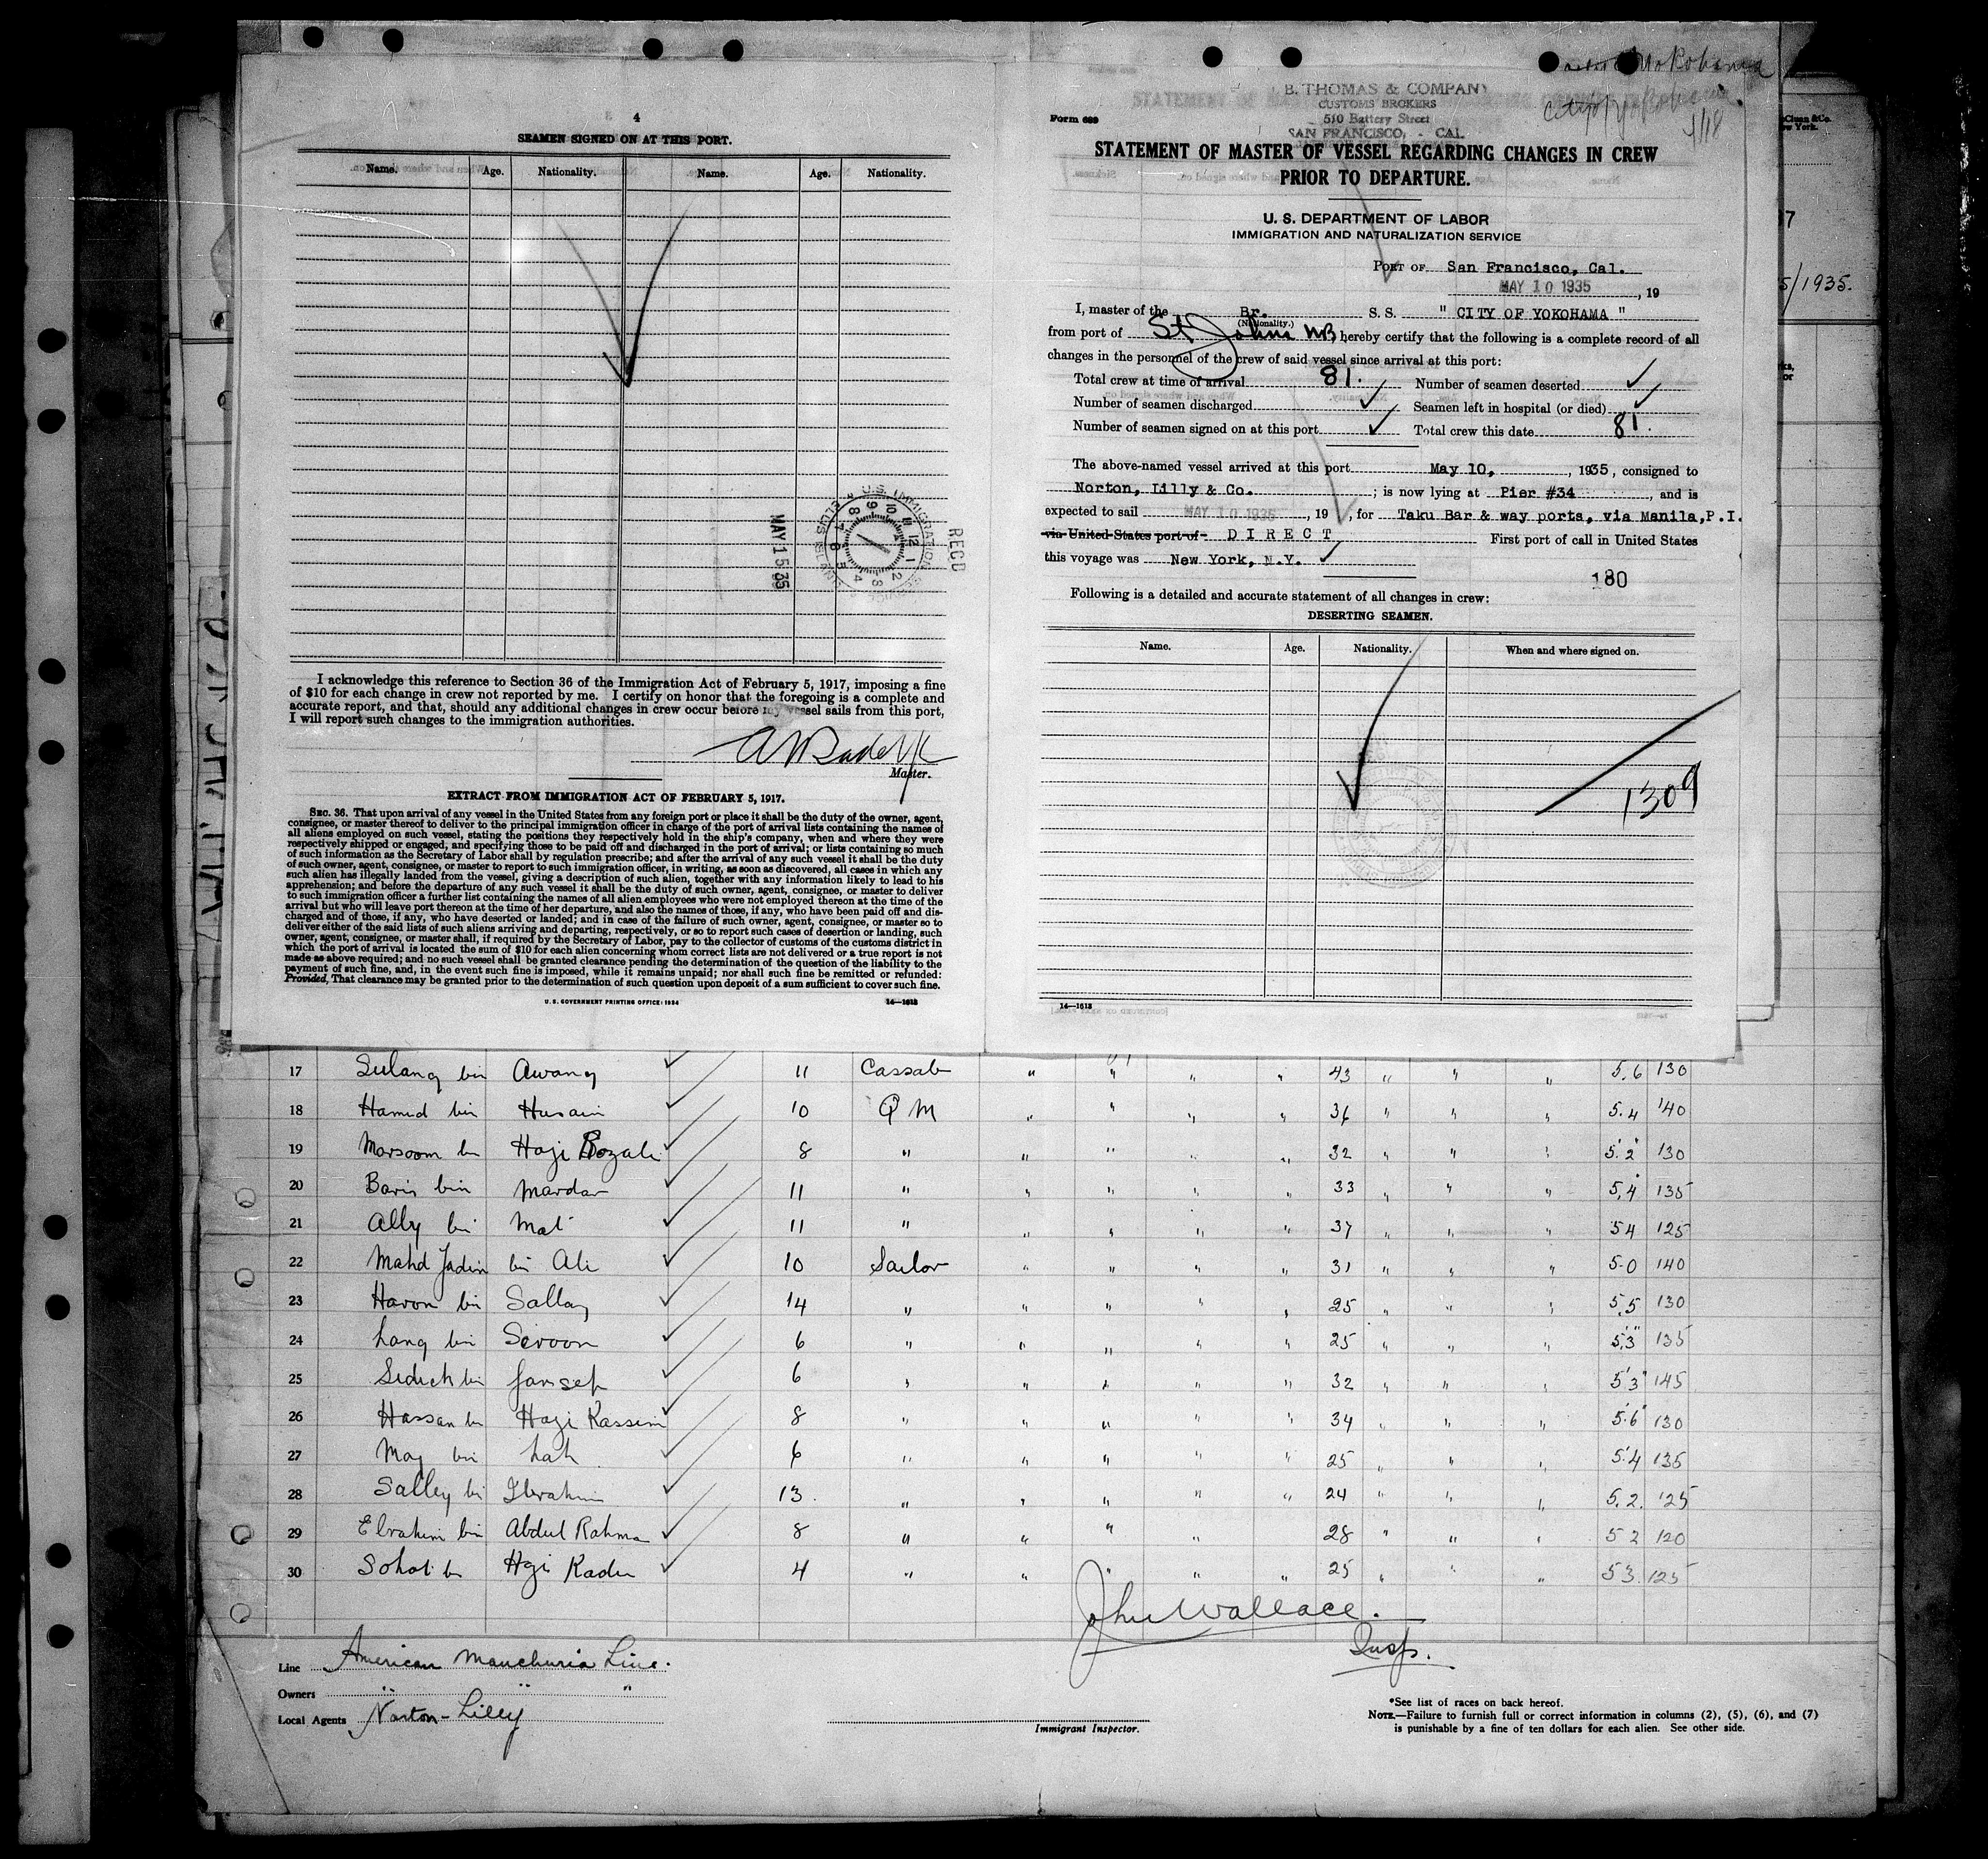 4
SEAMEN SIGNED ON AT THIS PORT.
Name. Age. Nationality. Name. Age. Nationality.
U. S. IMMIGRATION
ELLIS ISLAND
MAY 15 35
RECD
I acknowledge this reference to Section 36 of the Immigration Act of February 5, 1917, imposing a fine
of $10 for each change in crew not reported by me. I certify on honor that the foregoing is a complete and
accurate report, and that, should any additional changes in crew occur before my vessel sails from this port,
I will report such changes to the immigration authorities.
Master.
EXTRACT FROM IMMIGRATION ACT OF FEBRUARY 5, 1917.
SEC. 36. That upon arrival of any vessel in the United States from any foreign port or place it shall be the duty of the owner, agent,
consignee, or master thereof to deliver to the principal immigration officer in charge of the port of arrival lists containing the names of
all aliens employed on such vessel, stating the positions they respectively hold in the ship's company, when and where they were
respectively shipped or engaged, and specifying those to be paid off and discharged in the port of arrival; or lists containing so much
of such information as the Secretary of Labor shall by regulation prescribe; and after the arrival of any such vessel it shall be the duty
of such owner, agent, consignee, or master to report to such immigration officer, in writing, as soon as discovered, all cases in which any
such alien has illegally landed from the vessel, giving a description of such alien, together with any information likely to lead to his
apprehension; and before the departure of any such vessel it shall be the duty of such owner, agent, consignee, or master to deliver
to such immigration officer a further list containing the names of all alien employees who were not employed thereon at the time of the
arrival but who will leave port thereon at the time of her departure, and also the names of those, if any, who have been paid off and dis-
charged and of those, if any, who have deserted or landed; and in case of the failure of such owner, agent, consignee, or master so to
deliver either of the said lists of such aliens arriving and departing, respectively, or so to report such cases of desertion or landing, such
owner, agent, consignee, or master shall, if required by the Secretary of Labor, pay to the collector of customs of the customs district in
which the port of arrival is located the sum of $10 for each alien concerning whom correct lists are not delivered or a true report is not
made as above required; and no such vessel shall be granted clearance pending the determination of the question of the liability to the
payment of such fine, and, in the event such fine is imposed, while it remains unpaid; nor shall such fine be remitted or refunded:
Provided, That clearance may be granted prior to the determination of such question upon deposit of a sum sufficient to cover such fine.
U. S. GOVERNMENT PRINTING OFFICE: 1934 14—1613
Yokohama
City of Yokohama
Form 689
B. THOMAS & COMPANY
CUSTOMS BROKERS
510 Battery Street
SAN FRANCISCO, - CAL
STATEMENT OF MASTER OF VESSEL REGARDING CHANGES IN CREW
PRIOR TO DEPARTURE.
U. S. DEPARTMENT OF LABOR
IMMIGRATION AND NATURALIZATION SERVICE
PORT OF San Francisco, Cal.
MAY 10 1935, 19
I, master of the Br. S. S. " CITY OF YOKOHAMA "
(Nationality.)
from port of St Johns NB, hereby certify that the following is a complete record of all
changes in the personnel of the crew of said vessel since arrival at this port:
Total crew at time of arrival 81. Number of seamen deserted
Number of seamen discharged Seamen left in hospital (or died)
Number of seamen signed on at this port Total crew this date 81.
The above-named vessel arrived at this port May 10, , 1935, consigned to
Norton, Lilly & Co. ; is now lying at Pier #34 , and is
expected to sail MAY 10 1935, 19 , for Taku Bar & way ports, via Manila,P.I.
via United States port of DIRECT First port of call in United States
this voyage was New York, N.Y.
180
Following is a detailed and accurate statement of all changes in crew:
DESERTING SEAMEN.
Name. Age. Nationality. When and where signed on.
1309
14—1613
5/1935.
17 Sulang bin Awang 11 Cassab " " " " 43 " " " 5.6 130
18 Hamid bin Husain 10 Q M " " " " 36 " " " 5.4 140
19 Marsoom bn Haji Rozali 8 " " " " " 32 " " " 5.2 130
20 Baris bin Mardan 11 " " " " " 33 " " " 5,4 135
21 Ally bin Mat 11 " " " " " 37 " " " 5 4 125
22 Mahd Jadin bin Ali 10 Sailor " " " " 31 " " " 5-0 140
23 Haron bin Sallay 14 " " " " " 25 " " " 5,5 130
24 Lang bin Seroon 6 " " " " " 25 " " " 5'3" 135
25 Sidick bin Jansep 6 " " " " " 32 " " " 5'3" 145
26 Hassan bn Haji Kassim 8 " " " " " 34 " " " 5.6 130
27 May bin Lah 6 " " " " " 25 " " " 5.4 135
28 Salley bi Ibrahim 13. " " " " " 24 " " " 5.2. 125
29 Ebrahim bin Abdul Rahma 8 " " " " " 28 " " " 5 2 120
30 Sohot bn Hji Kader 4 " " " " " 25 " " " 5 3. 125
John Wallace.
Insp.
Line American Manchuria Line.
Owners " " "
Local Agents Norton-Lilly
Immigrant Inspector.
*See list of races on back hereof.
NOTE.—Failure to furnish full or correct information in columns (2), (5), (6), and (7)
is punishable by a fine of ten dollars for each alien. See other side.